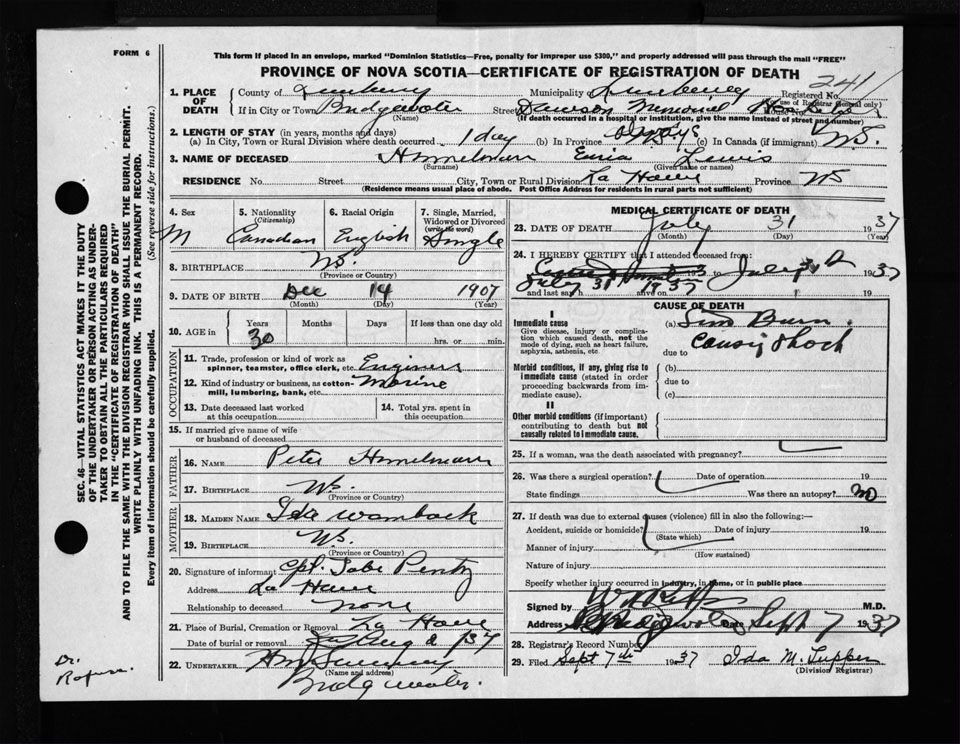 FORM 6
This form if placed in an envelope, marked "Dominion Statistics—Free, penalty for improper use $300," and properly addressed will pass through the mail "FREE"
PROVINCE OF NOVA SCOTIA—CERTIFICATE OF REGISTRATION OF DEATH
241
1. PLACE OF DEATH { County of Lunenburg Municipality Lunenburg Registered No. (For use of Registrar General only)
If in City or Town Bridgewater (Name) Street Dawson Memorial Hospital House No.
(If death occurred in a hospital or institution, give the name instead of street and number)
2. LENGTH OF STAY (in years, months and days)
(a) In City, Town or Rural Division where death occurred 1 day (b) In Province (c) In Canada (if immigrant) NS.
3. NAME OF DECEASED Himmelman (Surname) Lewis (Given name or names)
RESIDENCE No. Street City, Town or Rural Division La Have Province NS
(Residence means usual place of abode. Post Office Address for residents in rural parts not sufficient)
4. Sex M
5. Nationality (Citizenship) Canadian
6. Racial Origin English
7. Single, Married, Widowed or Divorced (write the word) Single
8. BIRTHPLACE NS. (Province or Country)
9. DATE OF BIRTH Dec (Month) 14 (Day) 1907 (Year)
10. AGE in { Years 30 Months Days If less than one day old hrs. or min.
OCCUPATION
11. Trade, profession or kind of work as spinner, teamster, office clerk, etc. Engineer
12. Kind of industry or business, as cotton-mill, lumbering, bank, etc. Marine
13. Date deceased last worked at this occupation
14. Total yrs. spent in this occupation
15. If married give name of wife or husband of deceased
FATHER
16. NAME Peter Himmelman
17. BIRTHPLACE NS. (Province or Country)
MOTHER
18. MAIDEN NAME Ida Wamback
19. BIRTHPLACE NS. (Province or Country)
20. Signature of informant Cpt. Pentz
Address La Have
Relationship to deceased none
21. Place of Burial, Cremation or Removal La Have
Date of burial or removal Aug 2 1937
22. UNDERTAKER
(Name and address)
Bridgewater.
MEDICAL CERTIFICATE OF DEATH
23. DATE OF DEATH July (Month) 31 (Day) 1937 (Year)
24. I HEREBY CERTIFY that I attended deceased from:
193 to July 1937
July 31 1937
and last saw h alive on
CAUSE OF DEATH
I
Immediate cause
Give disease, injury or complication which caused death, not the mode of dying, such as heart failure, asphyxia, asthenia, etc.
(a) Burn
due to causing shock
Morbid conditions, if any, giving rise to immediate cause (stated in order proceeding backwards from immediate cause).
(b)
due to
(c)
II
Other morbid conditions (if important) contributing to death but not causally related to immediate cause.
25. If a woman, was the death associated with pregnancy?
26. Was there a surgical operation? Date of operation 19
State findings Was there an autopsy? no
27. If death was due to external causes (violence) fill in also the following:—
Accident, suicide or homicide? (State which) Date of injury 19
Manner of injury (How sustained)
Nature of injury
Specify whether injury occurred in industry, in home, or in public place
Signed by M.D.
Address Bridgewater Date Sept 7 1937
28. Registrar's Record Number
29. Filed Sept 7th 1937 Ida M. Tupper (Division Registrar)
SEC. 46—VITAL STATISTICS ACT MAKES IT THE DUTY
OF THE UNDERTAKER OR PERSON ACTING AS UNDER-
TAKER TO OBTAIN ALL THE PARTICULARS REQUIRED
IN THE "CERTIFICATE OF REGISTRATION OF DEATH"
AND TO FILE THE SAME WITH THE DIVISION REGISTRAR WHO SHALL ISSUE THE BURIAL PERMIT.
WRITE PLAINLY WITH UNFADING INK. THIS IS A PERMANENT RECORD.
Every item of information should be carefully supplied. (See reverse side for instructions.)
Dr.